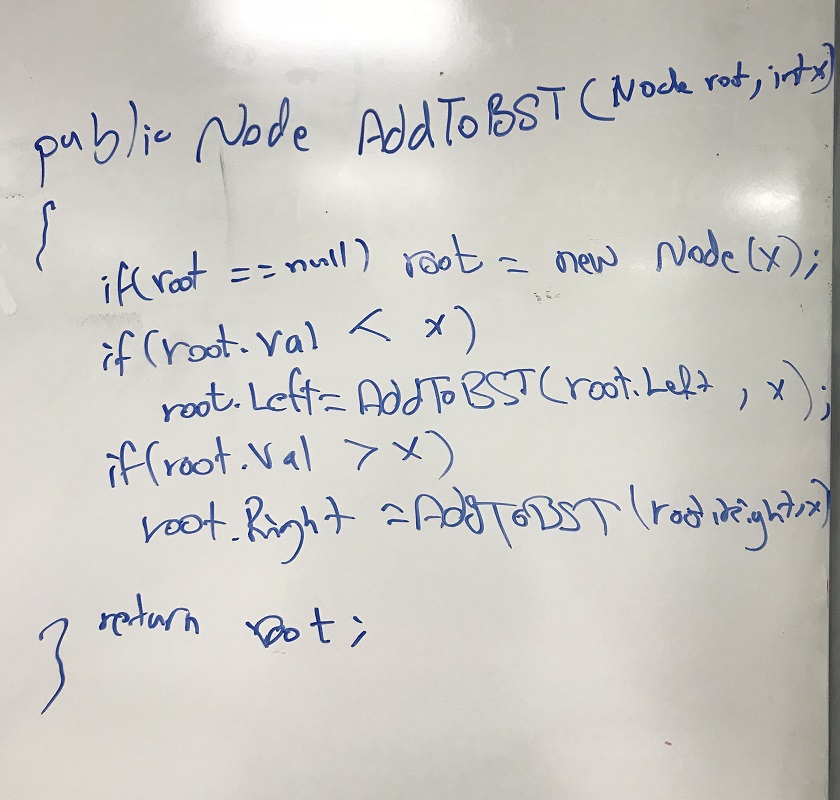 public Node AddToBST(Node root, int x)
{
if(root == null) root = new Node(x);
if(root.val < x)
root.Left = AddToBST(root.Left, x);
if(root.val > x)
root.Right = AddToBST(root.Right, x)
return root;
}